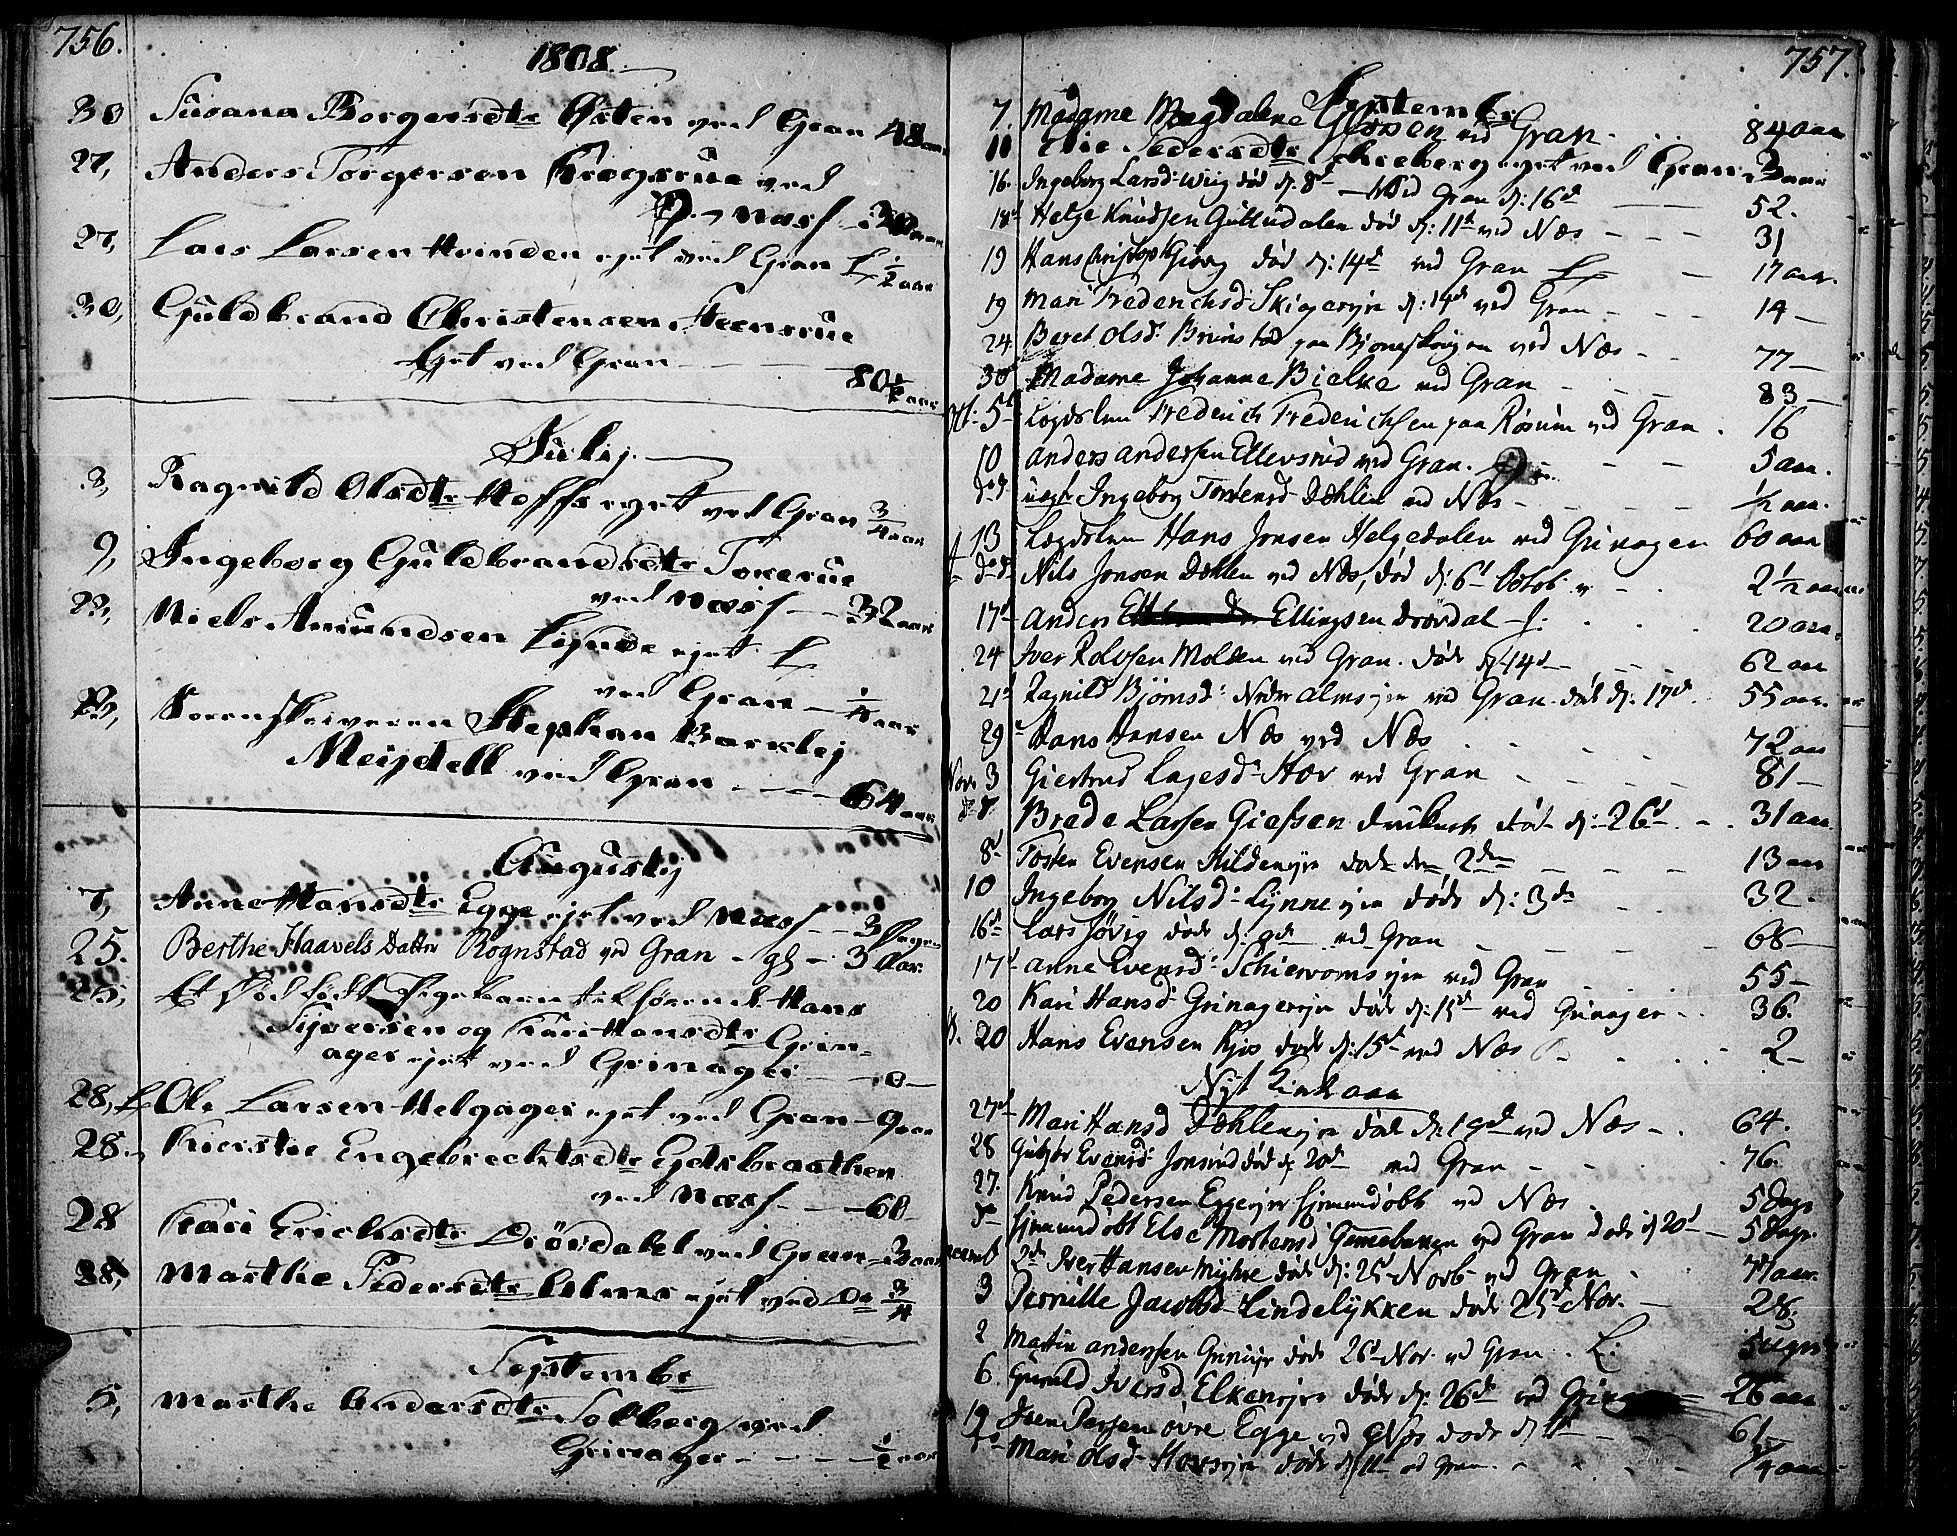 756.
1808.
30 Susana Borgersdtr Østen ved Gran 48 aar
27, Anders Torgersen Krogsrue ved
Næss 30 aar
27, Lars Larsen Hvinden ejet ved Gran 1/2 aar
30, Guldbrand Christensen Steensrue
Ejet ved Gran 80 1/2 aar
Julij.
3, Ragnild Olsdtr Hoffs ejet ved Gran 3/4 aar
9, Ingeborg Guldbrandsdtr Torerue
ved Næss 32 aar
22, Niels Amundsen Lysnde ejet
ved Gran 1/4 aar
Sorenskriveren Stephan Barklej
Meijdell ved Gran 64 aar
Augustij
7, Anne Hansdtr Egge ejet ved Næss 3 Dage
25. Berthe Haavels Datter Rognstad ved Gran 3 Aar.
25, Et død født Pigebarn Hans
Syversen og Kari Hansdtr Grin=
ager ejet ved Grinager 0
28, Ole Larsen Helgager ejet ved Gran 9 aar
28. Kierstie Engebrechtsdtr Eydsbraathen
ved Næss 60
28 Kari Erichsdtr Drövdahl ved Gran 3 aar
28, Marthe Pedersdtr Alms ejet ved Do 3/4
Septembr
5, Marthe Andersdtr Solberg ved
Grinager 1/2 aar
757.
Septembr
7. Madame Magdalene ved Gran 84 aar
11 Elie Pedersdtr ejet ved Gran 3 aar
16. Ingeborg Larsd: Wiig død d. 8d ved Gran d: 16d 52.
18d Helge Knudsen Gulludalen død d: 11d ved Næs 31
19 Hans Christoph Giörg død d: 14d ved Gran 17 aar.
19 Mari Frederichsd: Skiagerejer d: 19d ved Gran 14
24. Beret Olsd: Brunstad paa ved Næs 77
30 Madame Johanne Bielke ved Gran 83
Oct: 5d Frederich Frederichsen paa Røsum ved Gran 16
10 Anders Andersen Ellevsrud ved Gran. 5 aar.
dod Ingeborg Torstensd Dæhlen ved Næs 1/2 aar.
13 Lægdslem Hans Jonsen Helgedalen ved Grinager 60 aar
dod Nils Jonsen Dæhlen ved Næs, død d: 6d Octob. 2 1/2 aar
17d Anders Ellingsen Drövdal 20 aar.
24 Iver Rolvsen Molden ved Gran. død d 14d 62 aar
21d Ragnild Bjørnsd: Nedre Almsejer ved Gran død d: 17d 55 aar.
29 Hans Hansen Næs ved Næs 72 aar
Nov. 3 Giertrud Lagesd: Hov ved Gran 81
do 8 Brede Larsen Giefsen død d: 26d 31 aar
8d Tosten Evensen Kildenejer døde den 2den 13 aar
10 Ingeborg Nilsd: Lynneejer døde d: 3de 32.
16d Lars Jøvig døde d: 9de ved Gran 68
17d Anne Evensd: Schiervomsejer ved Gran 55
20 Kari Hansd: Grinagerejer døde d: 15d ved Grinager 36.
20 Hans Evensen Kjos døde d: 15d ved Næs 2
Nyt Kirkeaar
27d Mari Hansd Dæhleneje døde d: 19d ved Næs 64.
28 Gubjør Evensd: Jonsrud død d 20de ved Gran 76.
27. Knud Pedersen Eggeejer hjemmedøbt ved Næs 5 Dage
do hjemmedøbt Else Mortensd Gamebakken ved Gran døde d 20d 5 Dage
2de Iver Hansen Myhre døde d: 25 Novb ved Gran 77 aar.
3 Pernille Jacobsd Lindelykken døde 25d Nov. 28.
2 Martin Andersen døde 26d Nov. ved Gran 5 uger
6. Gunild Iversd Elkenejer døde d: 26de ved Grinager 26 aar
19 Iven Larsen øvre Egge ved Næs døde d 11 61
do Mari Olsd Hovsejer døde d 11 ved Gran. 1/4 aar